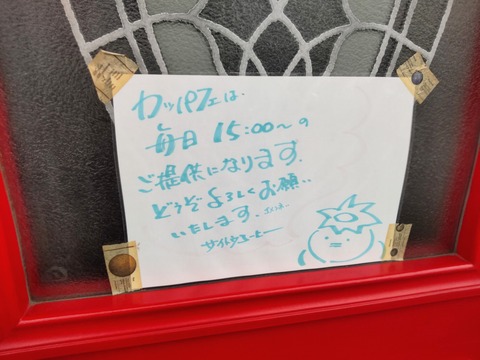 カッパフェは
毎日 15:00〜の
ご提供になります。
どうぞよろしくお願い
いたします。
サイトウコーヒー